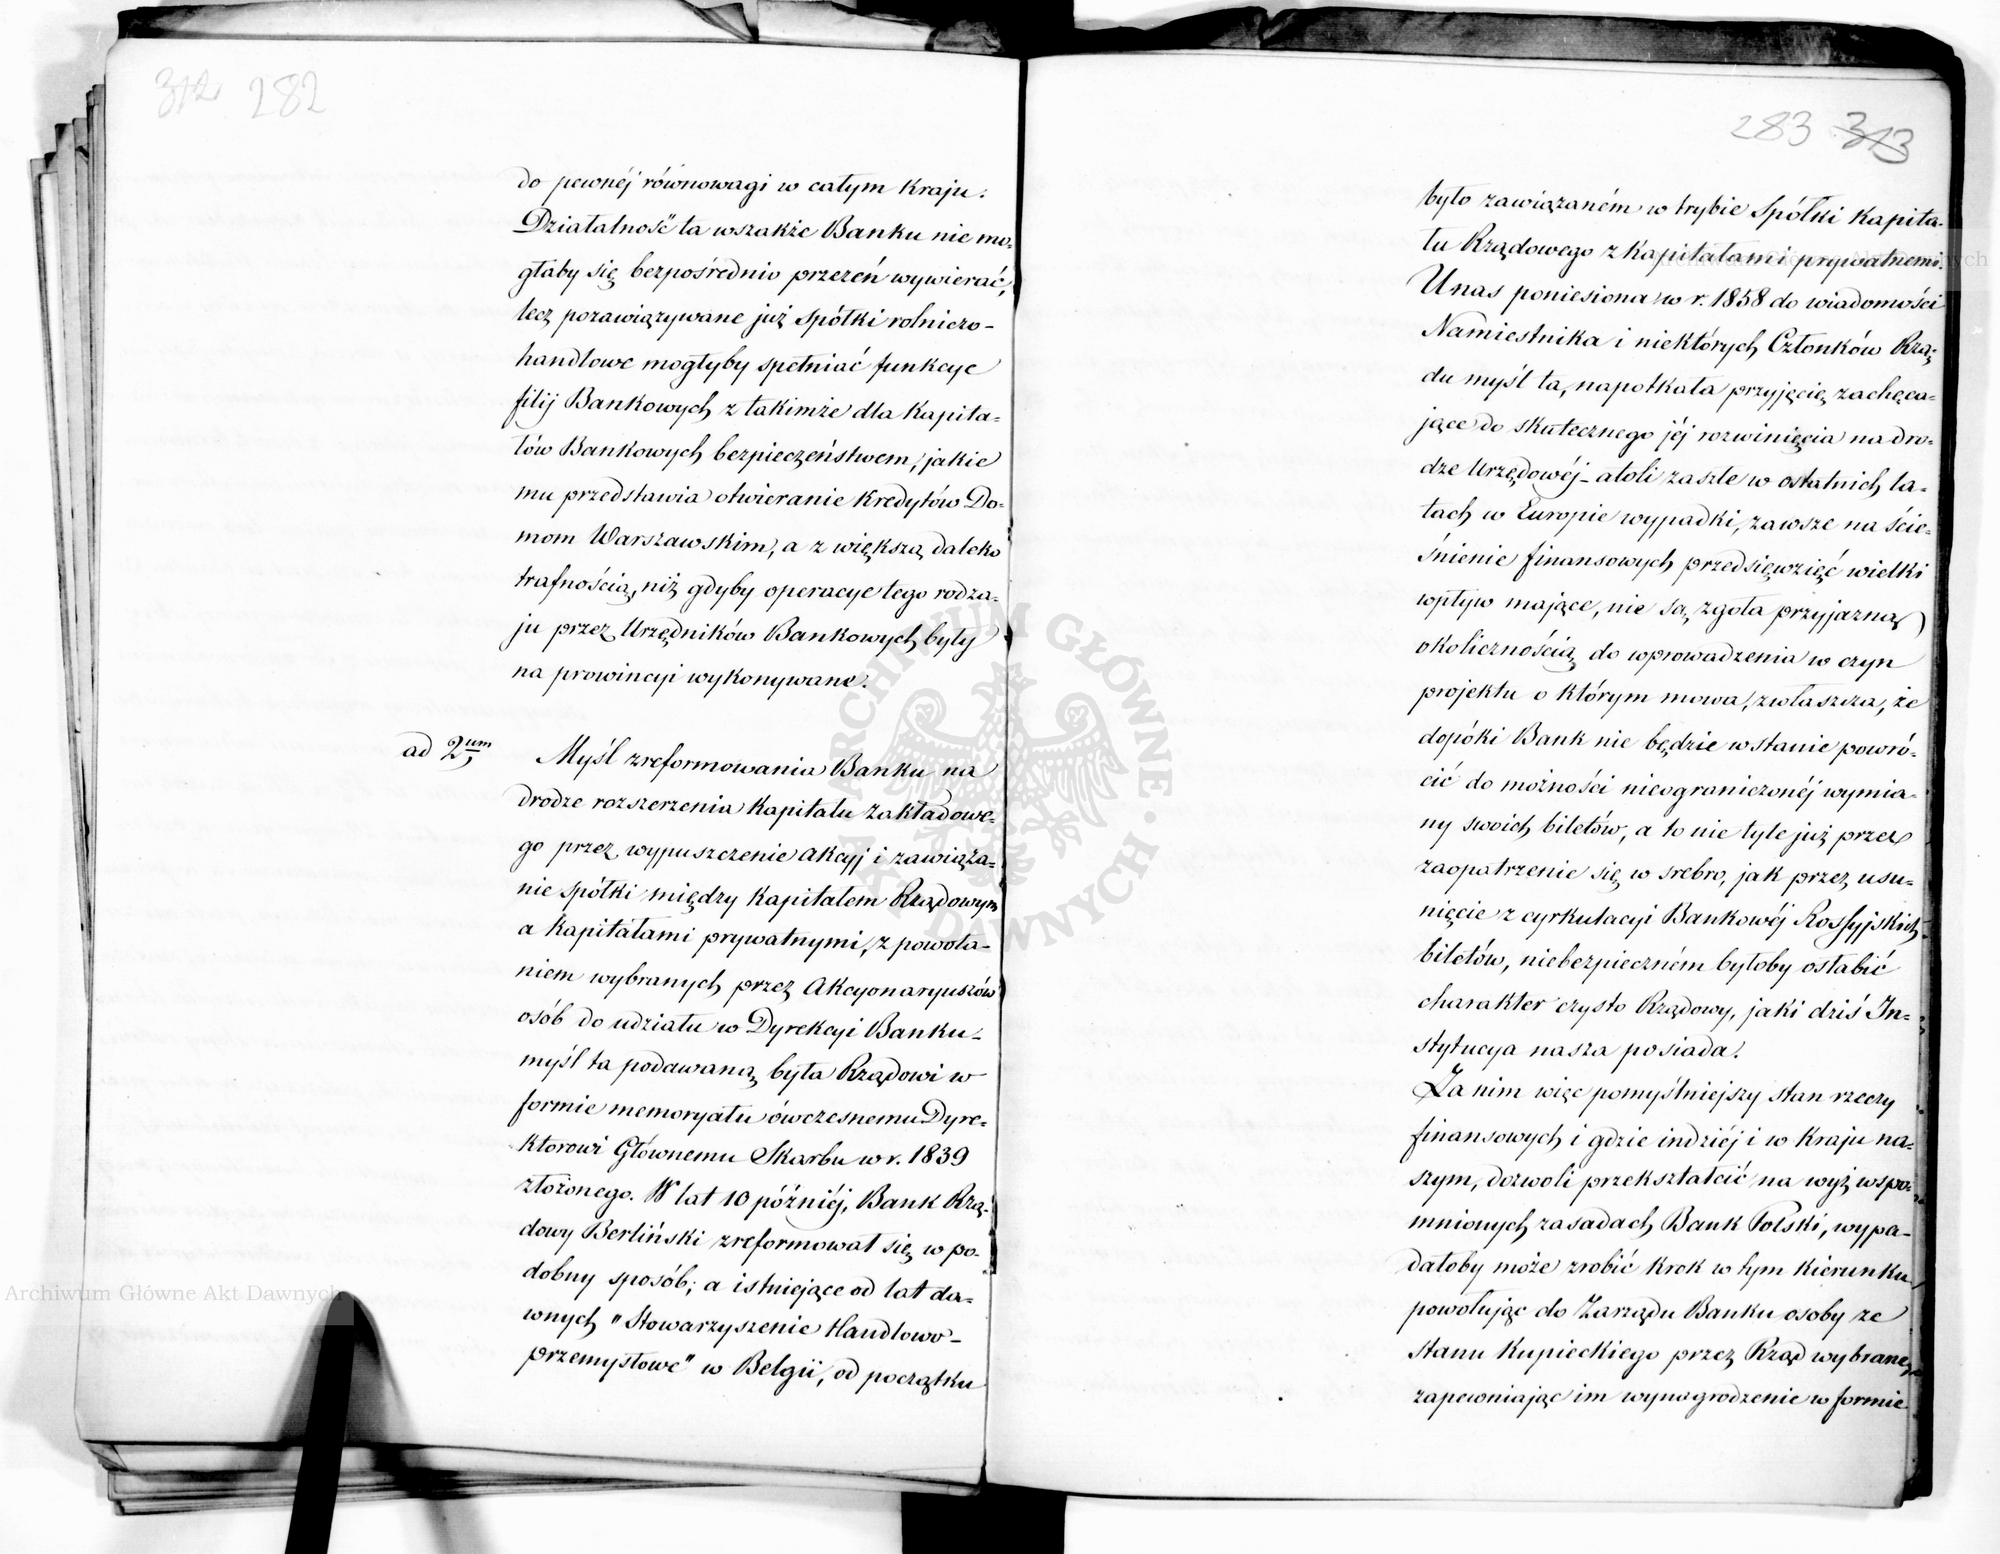 312 282
do pewnéj równowagi w całym Kraju.
Działalność ta wszakże Banku nie mo-
głaby się bezpośrednio przezeń wywierać,
lecz pozawiązywane już Spółki rolniczo-
handlowe mogłyby spełniać funkcye
filij Bankowych z takimże dla Kapita-
łów Bankowych bezpieczeństwem, jakie
mu przedstawia otwieranie Kredytów Do-
mom Warszawskim, a z większą daleko
trafnością, niż gdyby operacye tego rodza-
ju przez Urzędników Bankowych były
na prowincyi wykonywane.
ad 2um Myśl zreformowania Banku na
drodze rozszerzenia Kapitału Zakładowe-
go przez wypuszczenie Akcyj i zawiąza-
nie spółki między Kapitałem Rządowym
a Kapitałami prywatnymi, z powoła-
niem wybranych przez Akcyonaryuszów
osób do udziału w Dyrekcyi Banku-
myśl ta podawaną była Rządowi w
formie memoryału ówczesnemu Dyre-
ktorowi Głównemu Skarbu w r. 1839
złożonego. W lat 10 późniéj, Bank Rzą-
dowy Berliński zreformował się w po-
dobny sposób; a istniejące od lat da-
wnych "Stowarzyszenie Handlowo-
przemysłowe" w Belgii, od początku
283 313
było zawiązaném w trybie Spółki Kapita-
łu Rządowego z Kapitałami prywatnemi.
U nas poniesiona w r. 1858 do wiadomości
Namiestnika i niektórych Członków Rzą-
du myśl ta, napotkała przyjęcie, zachęca-
jące do skutecznego jéj rozwinięcia na dro-
dze Urzędowéj- atoli zaszłe w ostatnich la-
tach w Europie wypadki, zawsze na ście-
śnienie finansowych przedsięwzięć wielki
wpływ mające, nie są, zgoła przyjazną
okolicznością do wprowadzenia w czyn
projektu o którym mowa, zwłaszcza, że
dopóki Bank nie będzie w stanie powró-
cić do możności nieograniczonéj wymia-
ny swoich biletów, a to nie tyle już przez
zaopatrzenie się w srebro, jak przez usu-
nięcie z cyrkulacyi Bankowéj Rossyjskich
biletów, niebezpieczném byłoby osłabić
charakter czysto Rządowy, jaki dziś In-
stytucya nasza posiada.
Za nim więc pomyślniejszy stan rzeczy
finansowych i gdzie indziéj i w Kraju na-
szym, dozwoli przekształcić na wyż wspo-
mnionych zasadach Bank Polski, wypa-
dałoby może zrobić Krok w tym Kierunku,
powołując do Zarządu Banku osoby ze
stanu Kupieckiego przez Rząd wybrane,
zapewniając im wynagrodzenie w formie
ARCHIWUM GŁÓWNE AKT DAWNYCH
Archiwum Główne Akt Dawnych
Archiwum Główne Akt Dawnych